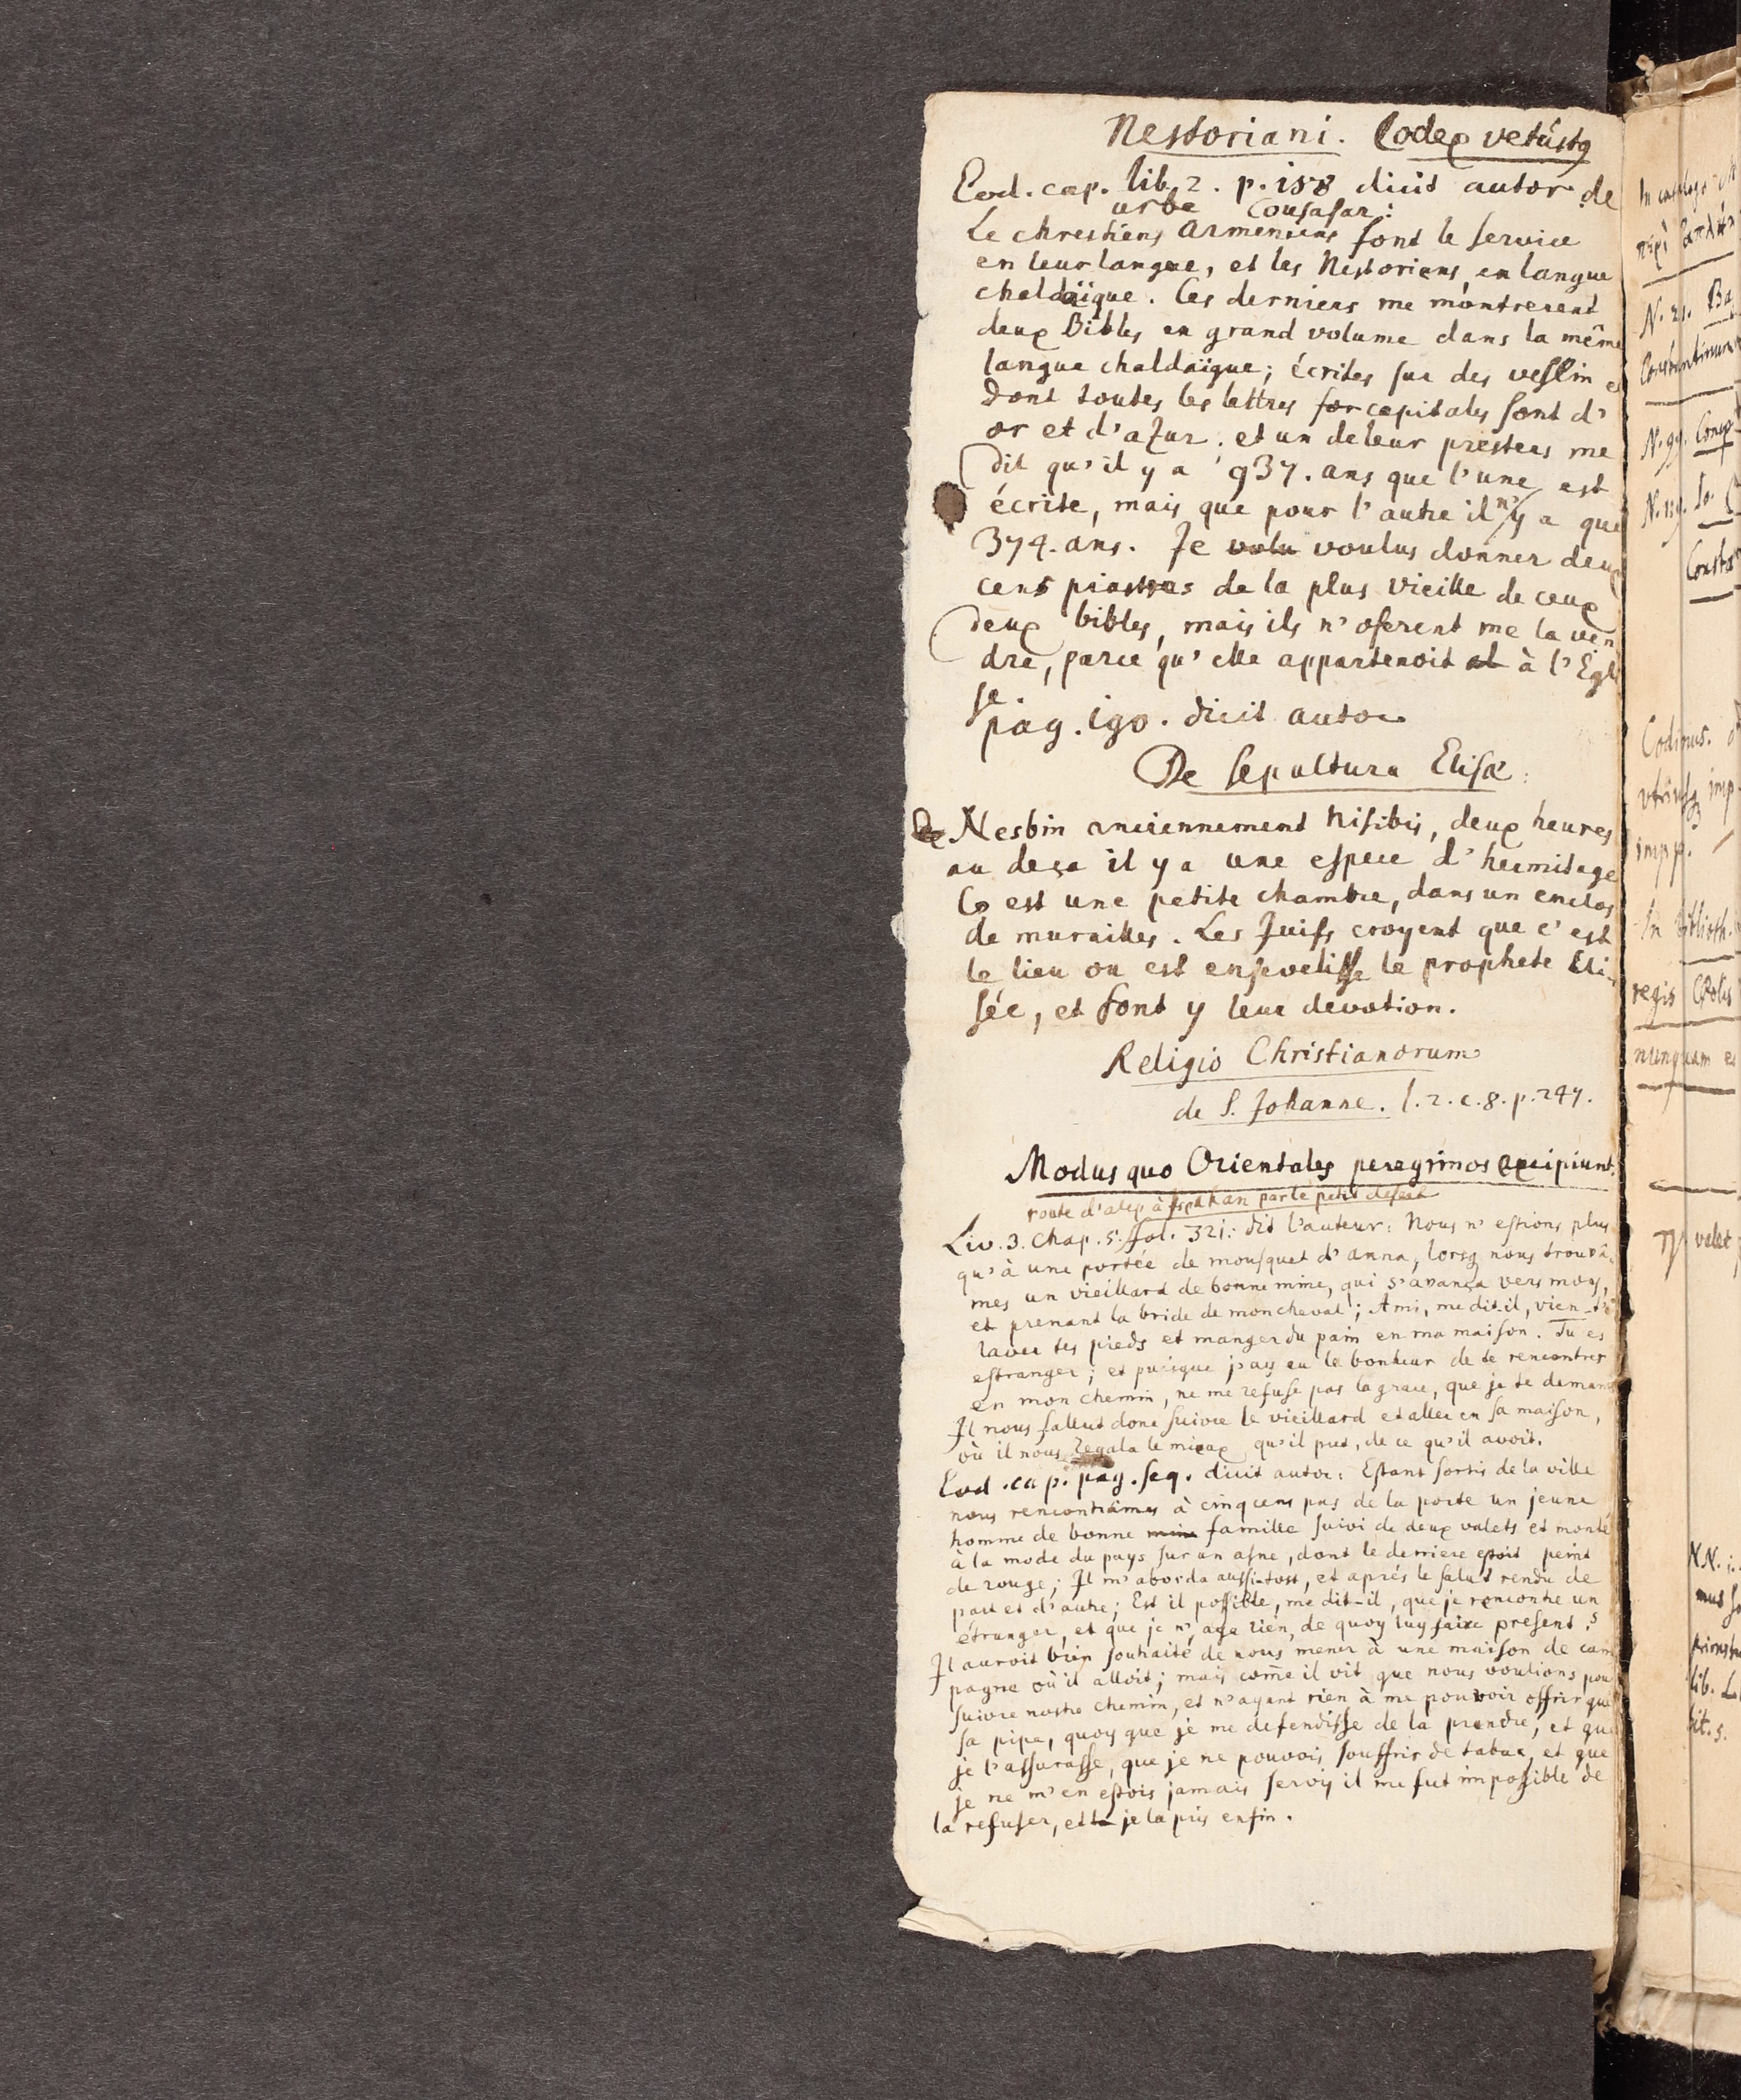 Nestoriani. Codex vetustq
Eod. cap. lib. 2. p. 158 dicit autor de
urbe Cousasar:
Le chrestiens Armeniens font le service
en leur langue, et les Nestoriens, en langue
chaldaïque. Ces derniers me montrerent
deux Bibles en grand volume dans la même
langue chaldaïque; écrites sur des veslin et
dont toutes les lettres for capitales sont d'
or et d'azur; et un de leur prestres me
dit qu'il y a 937. ans que l'une est
écrite, mais que pour l'autre il n'y a que
374. ans. Je volu voulus donner deux
cens piastres de la plus vieille de ceux
deux bibles, mais ils n'oserent me la ven
dre, parce qu'elle appartenoit al à l'Egli
se.
pag. 190. dicit autor
De sepultura Elisæ:
De Nesbin anciennement Nisibis, deux heures
au deça il y a une espece d'hermitage
Co est une petite chambre, dans un enclos
de murailles. Les Juifs croyent que c'est
le lieu ou est ensevelisse le prophete Eli-
sée, et font y leur devotion.
Religio Christianorum
de S. Johanne. l. 2. c. 8. p. 247.
Modus quo Orientales peregrinos excipiunt.
route d'alep à Ispahan par le petit desert
Liv. 3. Chap. 5. fol. 321: dit l'auteur: Nous n'estions plus
qu'à une portée de mousquet d'anna, lorsq nous trouvâ-
mes un vieillard de bonne mine, qui s'avança vers moy,
et prenant la bride de mon cheval; Ami, me dit-il, vien-t'en
laver tes pieds et manger du pain en ma maison. Tu es
estranger; et puisque j'ay eu le bonheur de te rencontrer
en mon chemin, ne me refuse pas la grace, que je te demand
Il nous fallut donc suivre le vieillard et aller en sa maison,
où il nous regala le mieux qu'il put, de ce qu'il avoit.
Eod. cap. pag. seq. dicit autor: Estant sortis de la ville
nous rencontrâmes à cinq cens pas de la porte un jeune
homme de bonne mine famille suivi de deux valets et monté
à la mode du pays sur un asne, dont le derriere estoit peint
de rouge; Il m'aborda aussi-tost, et aprés le salut rendu de
part et d'autre; Est il possible, me dit-il, que je rencontre un
étranger, et que je n'aye rien, de quoy luy faire present?
Il auroit bien souhaité de nous mener à une maison de cam
pagne où il alloit; mais come il vit que nous voulions pour
suivre nostre chemin, et n'ayant rien à me pouvoir offrir que
sa pipe, quoy que je me defendisse de la prendre, et que
je l'assurasse, que je ne pouvois souffrir de tabac, et que
je ne m'en estois jamais servy il me fut impossible de
la refuser, et la je la pris enfin.
N. 21. Ba
N. 99. Comp
N. 119. Io. C
Const
Codinus.
imp
impp.
In biblioth.
regis CPolis
nunquam e
valet
NN. 1.
mus
lib. L
tit. 5.